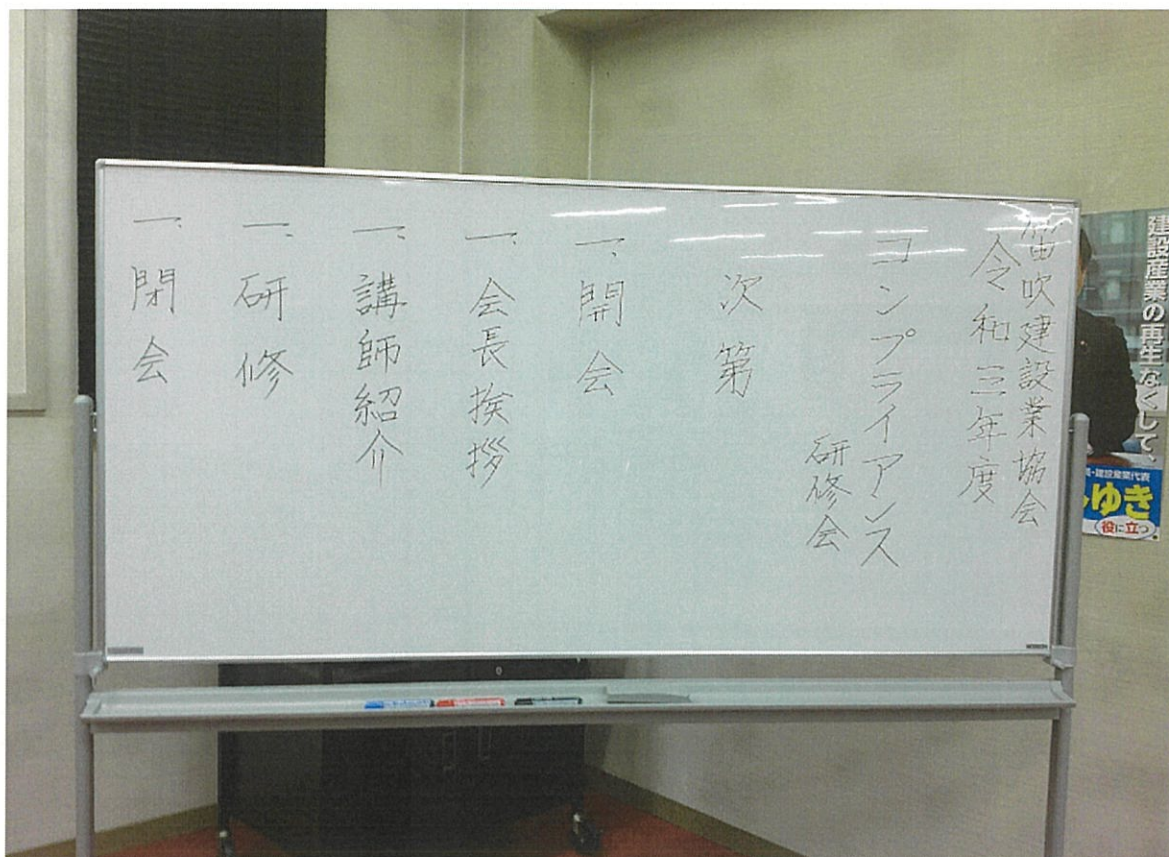 笛吹建設業協会
令和三年度
コンプライアンス
研修会
次第
一、開会
一、会長挨拶
一、講師紹介
一、研修
一、閉会
建設産業の再生なくして、
建設産業代表
ゆき
役に立つ